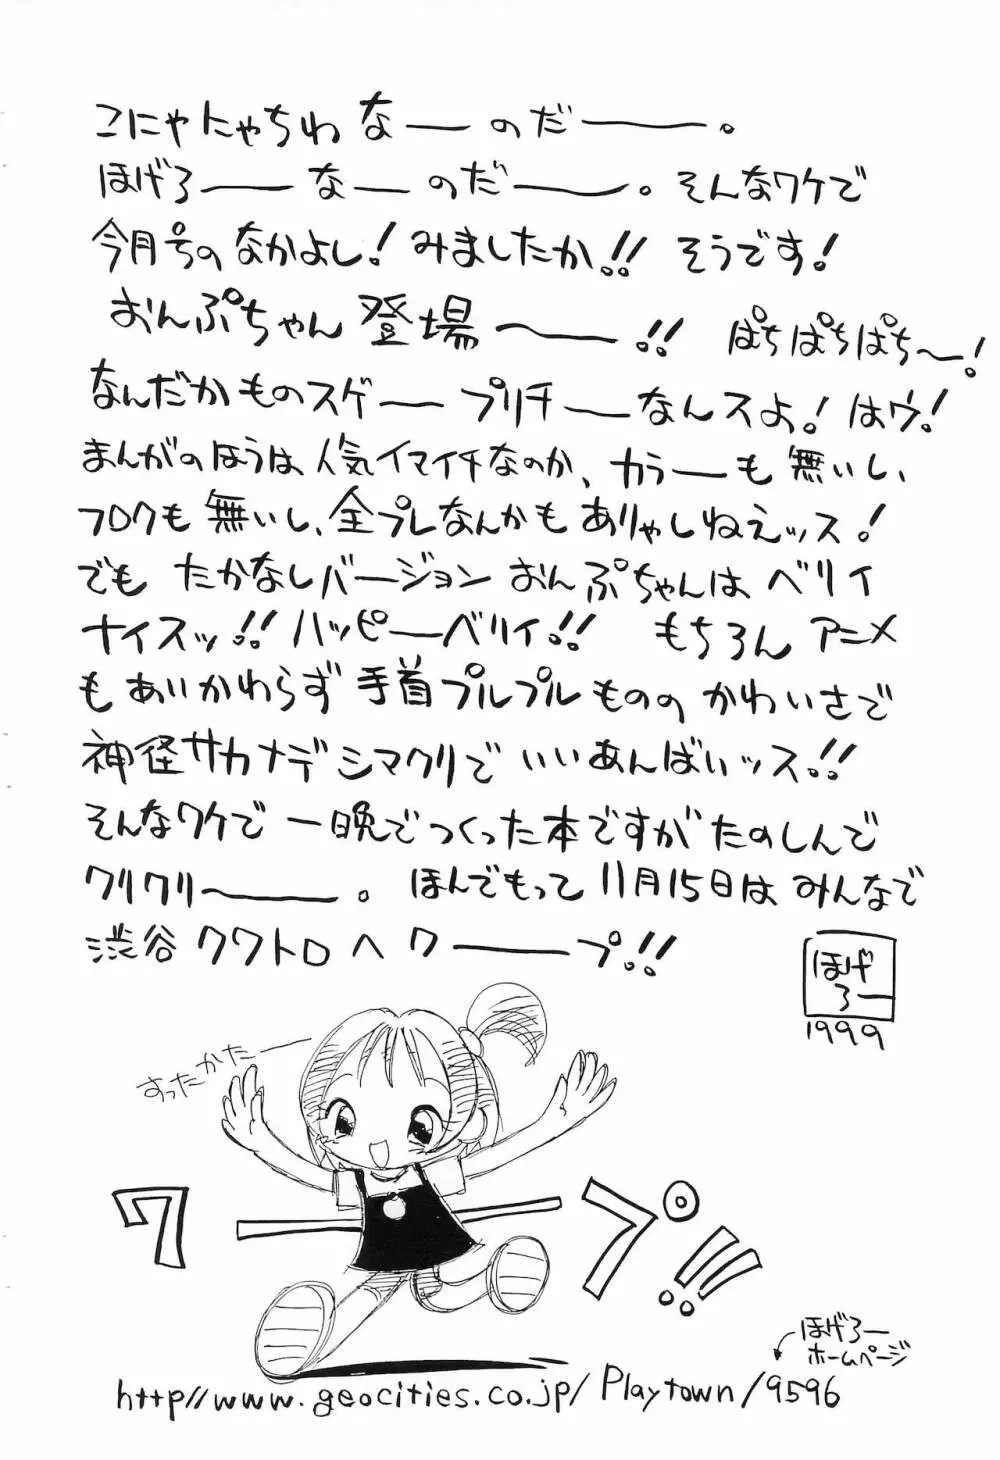 こにゃにゃちわ なーのだー。
ほげろーなーのだー。そんなワケで
今月号のなかよし!みましたか!!そうです!
おんぷちゃん登場ー!! ぱちぱちぱち〜!
なんだかものスゲープリチーなんスよ!はウ!
まんがのほうは人気イマイチなのか、カラーも無いし
フロクも無いし、全プレなんかもありゃしねえッス!
でも たかなしバージョンおんぷちゃんはベリイ
ナイスッ!!ハッピーベリィ!! もちろんアニメ
もあいかわらず手首プルプルもののかわいさで
神経サカナデシマクリでいいあんばいッス!!
そんなワケで一晩でつくった本ですがたのしんで
クリクリー。ほんでもって11月15日はみんなで
渋谷クワトロへワープ!!
ほげ
ろー
1999
すったかたー
ワープ!!
ほげろー
ホームページ
http//www.geocities.co.jp/Playtown/9596